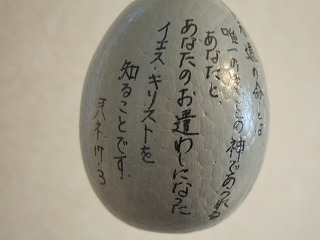 永遠の命とは
唯一のまことの神であられる
あなたと、
あなたのお遣わしになった
イエス・キリストを
知ることです。
ヨハネ17:3